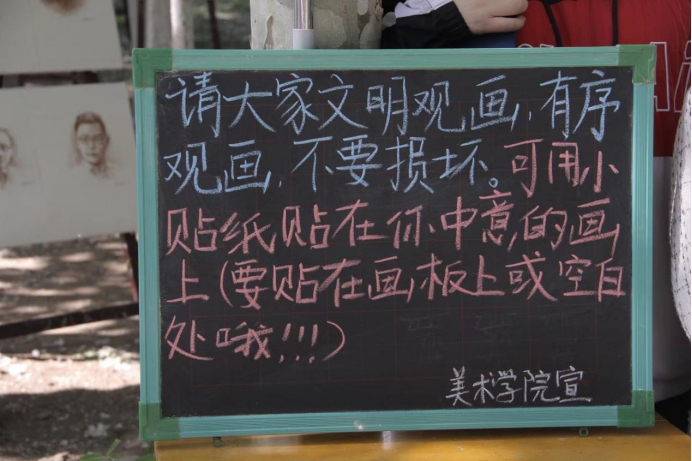 请大家文明观画,有序
观画,不要损坏。可用小
贴纸贴在你中意的画
上(要贴在画板上或空白
处哦!!!)
美术学院宣